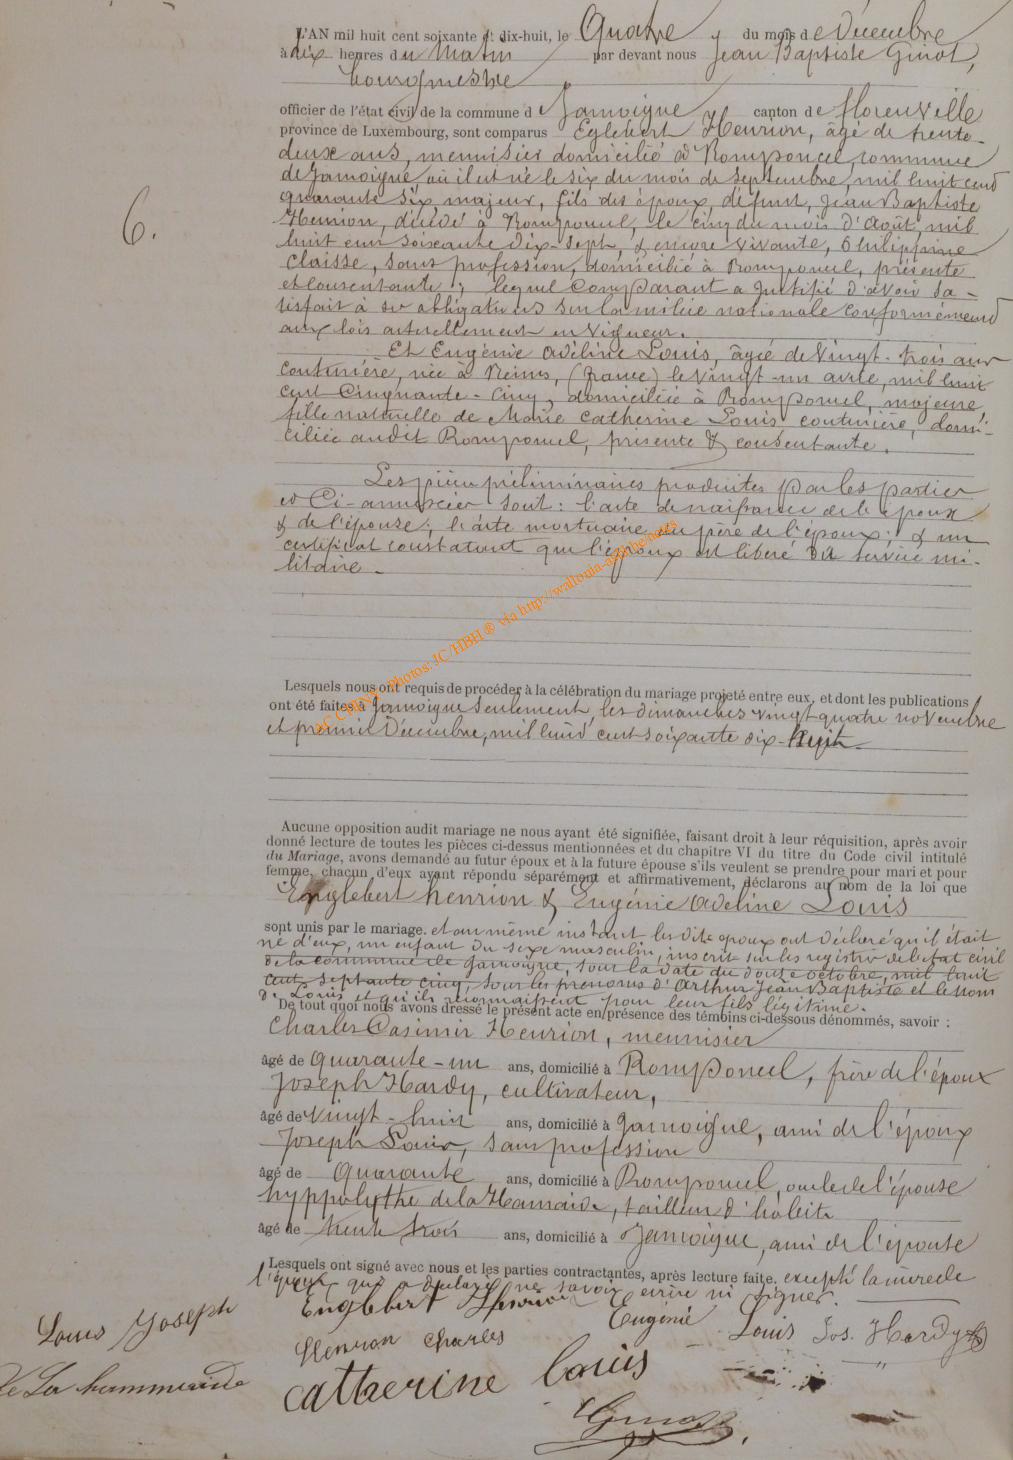 L'AN mil huit cent soixante et dix-huit, le Quatre du mois de Décembre
à dix heures du matin par devant nous Jean Baptiste Ginot,
bourgmestre
officier de l'état civil de la commune de Jamoigne canton de florenville
province de Luxembourg, sont comparus Eglebert Henrion, âgé de trente-
deux ans, menuisier domicilié à Romponcel commune
de Jamoigne où il est né le six du mois de Septembre, mil huit cent
quarante six, majeur, fils des époux, défunt, Jean Baptiste
Henrion, décédé à Romponcel, le cinq du mois d'Août, mil
huit cent soixante dix-sept, & encore vivante, Philippine
Claisse, sans profession, domicilié à Romponcel, présente
et consentante; lequel Comparant a Justifié d'avoir sa-
tisfait à ses obligations sur la milice nationale conformément
aux lois actuellement en vigueur.
Et Eugénie Adéline Louis, âgée de Vingt-trois ans
couturière, née à Reims, (france) le vingt-un avril, mil huit
cent Cinquante-Cinq, domiciliée à Romponcel, majeure,
fille naturelle de Marie Catherine Louis couturière, domi-
ciliée audit Romponcel, présente & consentante.
Les pièces préliminaires produites par les parties
et Ci-annexées sont: l'acte de naissance de l'époux
& de l'épouse; l'acte mortuaire du père de l'époux; & un
certificat constatant que l'époux est libéré du service mi-
litaire.
6.
AC CHINY - Photos: JC/HBH ® via http://wallonia-asbl.be/news
Lesquels nous ont requis de procéder à la célébration du mariage projeté entre eux, et dont les publications
ont été faites à Jamoigne seulement, les dimanches vingt quatre novembre
et premier Décembre, mil huit cent soixante dix-huit
Aucune opposition audit mariage ne nous ayant été signifiée, faisant droit à leur réquisition, après avoir
donné lecture de toutes les pièces ci-dessus mentionnées et du chapitre VI du titre du Code civil intitulé
du Mariage, avons demandé au futur époux et à la future épouse s'ils veulent se prendre pour mari et pour
femme, chacun d'eux ayant répondu séparément et affirmativement, déclarons au nom de la loi que
Englebert henrion & Eugénie Adeline Louis
sont unis par le mariage. et au même instant les dits époux ont déclaré qu'il était
né d'eux, un enfant du sexe masculin, inscrit sur les registres de l'état civil
de la commune de Jamoigne, sous la date du douze octobre, mil huit
cent septante cinq, sous les prénoms d'Arthur Jean Baptiste et le nom
de Louis et qu'ils reconnaissent pour leur fils légitime.
De tout quoi nous avons dressé le présent acte en présence des témoins ci-dessous dénommés, savoir :
Charles Casimir Henrion, menuisier
âgé de quarante-un ans, domicilié à Romponcel, frère de l'époux
Joseph Hardy, cultivateur,
âgé de vingt-huit ans, domicilié à Jamoigne, ami de l'époux
Joseph Louis, sans profession
âgé de quarante ans, domicilié à Romponcel, oncle de l'épouse
hyppolythe de la Hamaide, tailleur d'habits
âgé de trente trois ans, domicilié à Jamoigne, ami de l'épouse
Lesquels ont signé avec nous et les parties contractantes, après lecture faite. excepté la mère de
l'époux qui a déclaré ne savoir écrire ni signer.
Englebert Henrion Eugénie Louis Jos. Hardy
Louis Joseph
Henrion Charles
De La hammaide
Catherine Louis
Ginot